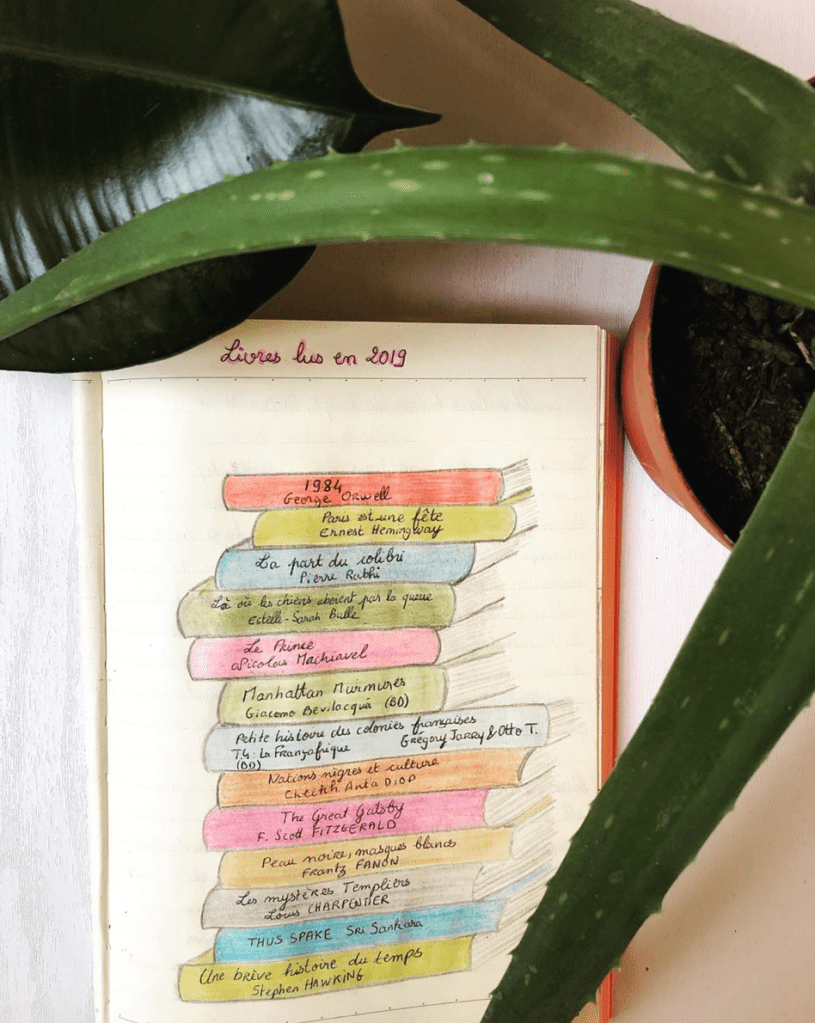 Livres lus en 2019
1984
George Orwell
Paris est une fête
Ernest Hemingway
La part du colibri
Pierre Rabhi
Là où les chiens aboient par la queue
Estelle-Sarah Bulle
Le Prince
Nicolas Machiavel
Manhattan Murmures
Giacomo Bevilacqua (BD)
Petite histoire des colonies françaises
T.4: La Françafrique Grégory Jarry & Otto T.
(BD)
Nations nègres et culture
Cheikh Anta DIOP
The Great Gatsby
F. Scott FITZGERALD
Peau noire, masques blancs
Frantz FANON
Les mystères Templiers
Louis CHARPENTIER
THUS SPAKE Sri Sankara
Une brève histoire du temps
Stephen HAWKING